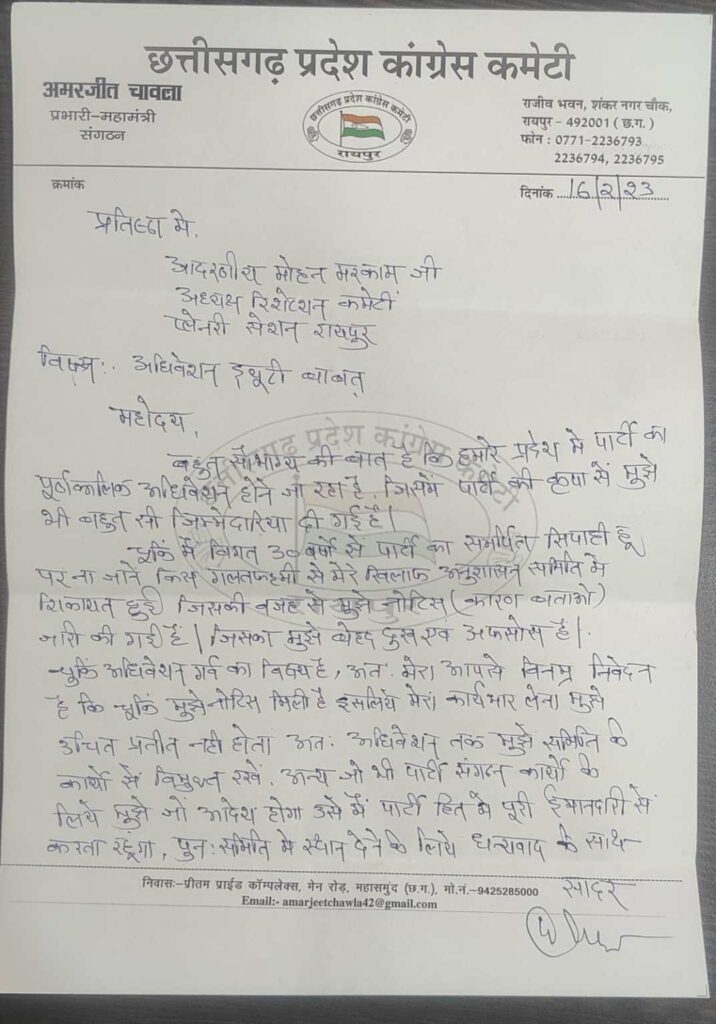 छत्तीसगढ़ प्रदेश कांग्रेस कमेटी
अमरजीत चावला
प्रभारी-महामंत्री
संगठन
छत्तीसगढ़ प्रदेश कांग्रेस कमेटी
रायपुर
राजीव भवन, शंकर नगर चौक,
रायपुर - 492001 ( छ.ग. )
फोन : 0771-2236793
2236794, 2236795
क्रमांक
दिनांक 16/2/23
प्रतिष्ठा मे,
आदरणीय मोहन मरकाम जी
अध्यक्ष रिशेप्शन कमेटी
प्लेनरी सेशन रायपुर
विषय:. अधिवेशन ड्यूटी बाबत्
महोदय,
बहुत सौभाग्य की बात है कि हमारे प्रदेश मे पार्टी का
पूर्णकालिक अधिवेशन होने जा रहा है, जिसमें पार्टी की कृपा सें मुझे
भी बहुत सी जिम्मेदारिया दी गई है।
चूकिं मैं विगत 30 वर्षो से पार्टी का समर्पित सिपाही हूं
पर ना जाने किस गलतफहमी से मेरे खिलाफ अनुशासन समिति मे
शिकायत हुई जिसकी वजह से मुझे नोटिस (कारण बताओ)
जारी की गई हैं। जिसका मुझे बेहद दुख एवं अफसोस है।
चूकिं अधिवेशन गर्व का विषय है, अतः मेरा आपसे विनम्र निवेदन
है कि चूकिं मुझे नोटिस मिली है इसलिये मेरा कार्यभार लेना मुझे
उचित प्रतीत नही होता अतः अधिवेशन तक मुझे समिति के
कार्यो सें विमुक्त रखें, अन्य जो भी पार्टी संगठन कार्यो के
लिये मुझे जों आदेश होगा उसे मैं पार्टी हित मे पूरी ईमानदारी सें
करता रहूंगा, पुनः समिति मे स्थान देने के लिये धन्यवाद के साथ
सादर
निवासः-प्रीतम प्राईड कॉम्पलेक्स, मेन रोड़, महासमुंद (छ.ग.). मो.नं.-9425285000
Email:- amarjeetchawla42@gmail.com